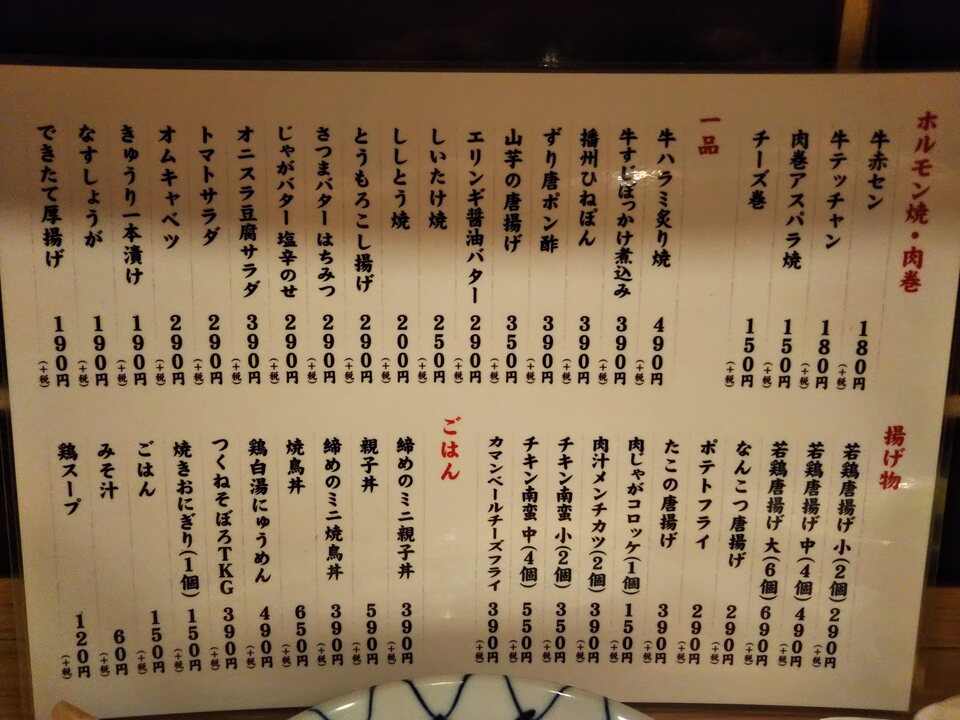 ホルモン焼・肉巻
牛赤セン 180円(+税)
牛テッチャン 180円(+税)
肉巻アスパラ焼 150円(+税)
チーズ巻 150円(+税)
一品
牛ハラミ炙り焼 490円(+税)
牛すじぼっかけ煮込み 390円(+税)
播州ひねぽん 390円(+税)
ずり唐ポン酢 390円(+税)
山芋の唐揚げ 350円(+税)
エリンギ醤油バター 290円(+税)
しいたけ焼 250円(+税)
ししとう焼 200円(+税)
とうもろこし揚げ 290円(+税)
さつまバターはちみつ 290円(+税)
じゃがバター塩辛のせ 290円(+税)
オニスラ豆腐サラダ 390円(+税)
トマトサラダ 290円(+税)
オムキャベツ 290円(+税)
きゅうり一本漬け 190円(+税)
なすしょうが 190円(+税)
できたて厚揚げ 190円(+税)
揚げ物
若鶏唐揚げ 小(2個) 290円(+税)
若鶏唐揚げ 中(4個) 490円(+税)
若鶏唐揚げ 大(6個) 690円(+税)
なんこつ唐揚げ 290円(+税)
ポテトフライ 290円(+税)
たこの唐揚げ 390円(+税)
肉じゃがコロッケ(1個) 150円(+税)
肉汁メンチカツ(2個) 390円(+税)
チキン南蛮 小(2個) 350円(+税)
チキン南蛮 中(4個) 550円(+税)
カマンベールチーズフライ 390円(+税)
ごはん
締めのミニ親子丼 390円(+税)
親子丼 590円(+税)
締めのミニ焼鳥丼 390円(+税)
焼鳥丼 650円(+税)
鶏白湯にゅうめん 490円(+税)
つくねそぼろTKG 390円(+税)
焼きおにぎり(1個) 150円(+税)
ごはん 150円(+税)
みそ汁 60円(+税)
鶏スープ 120円(+税)